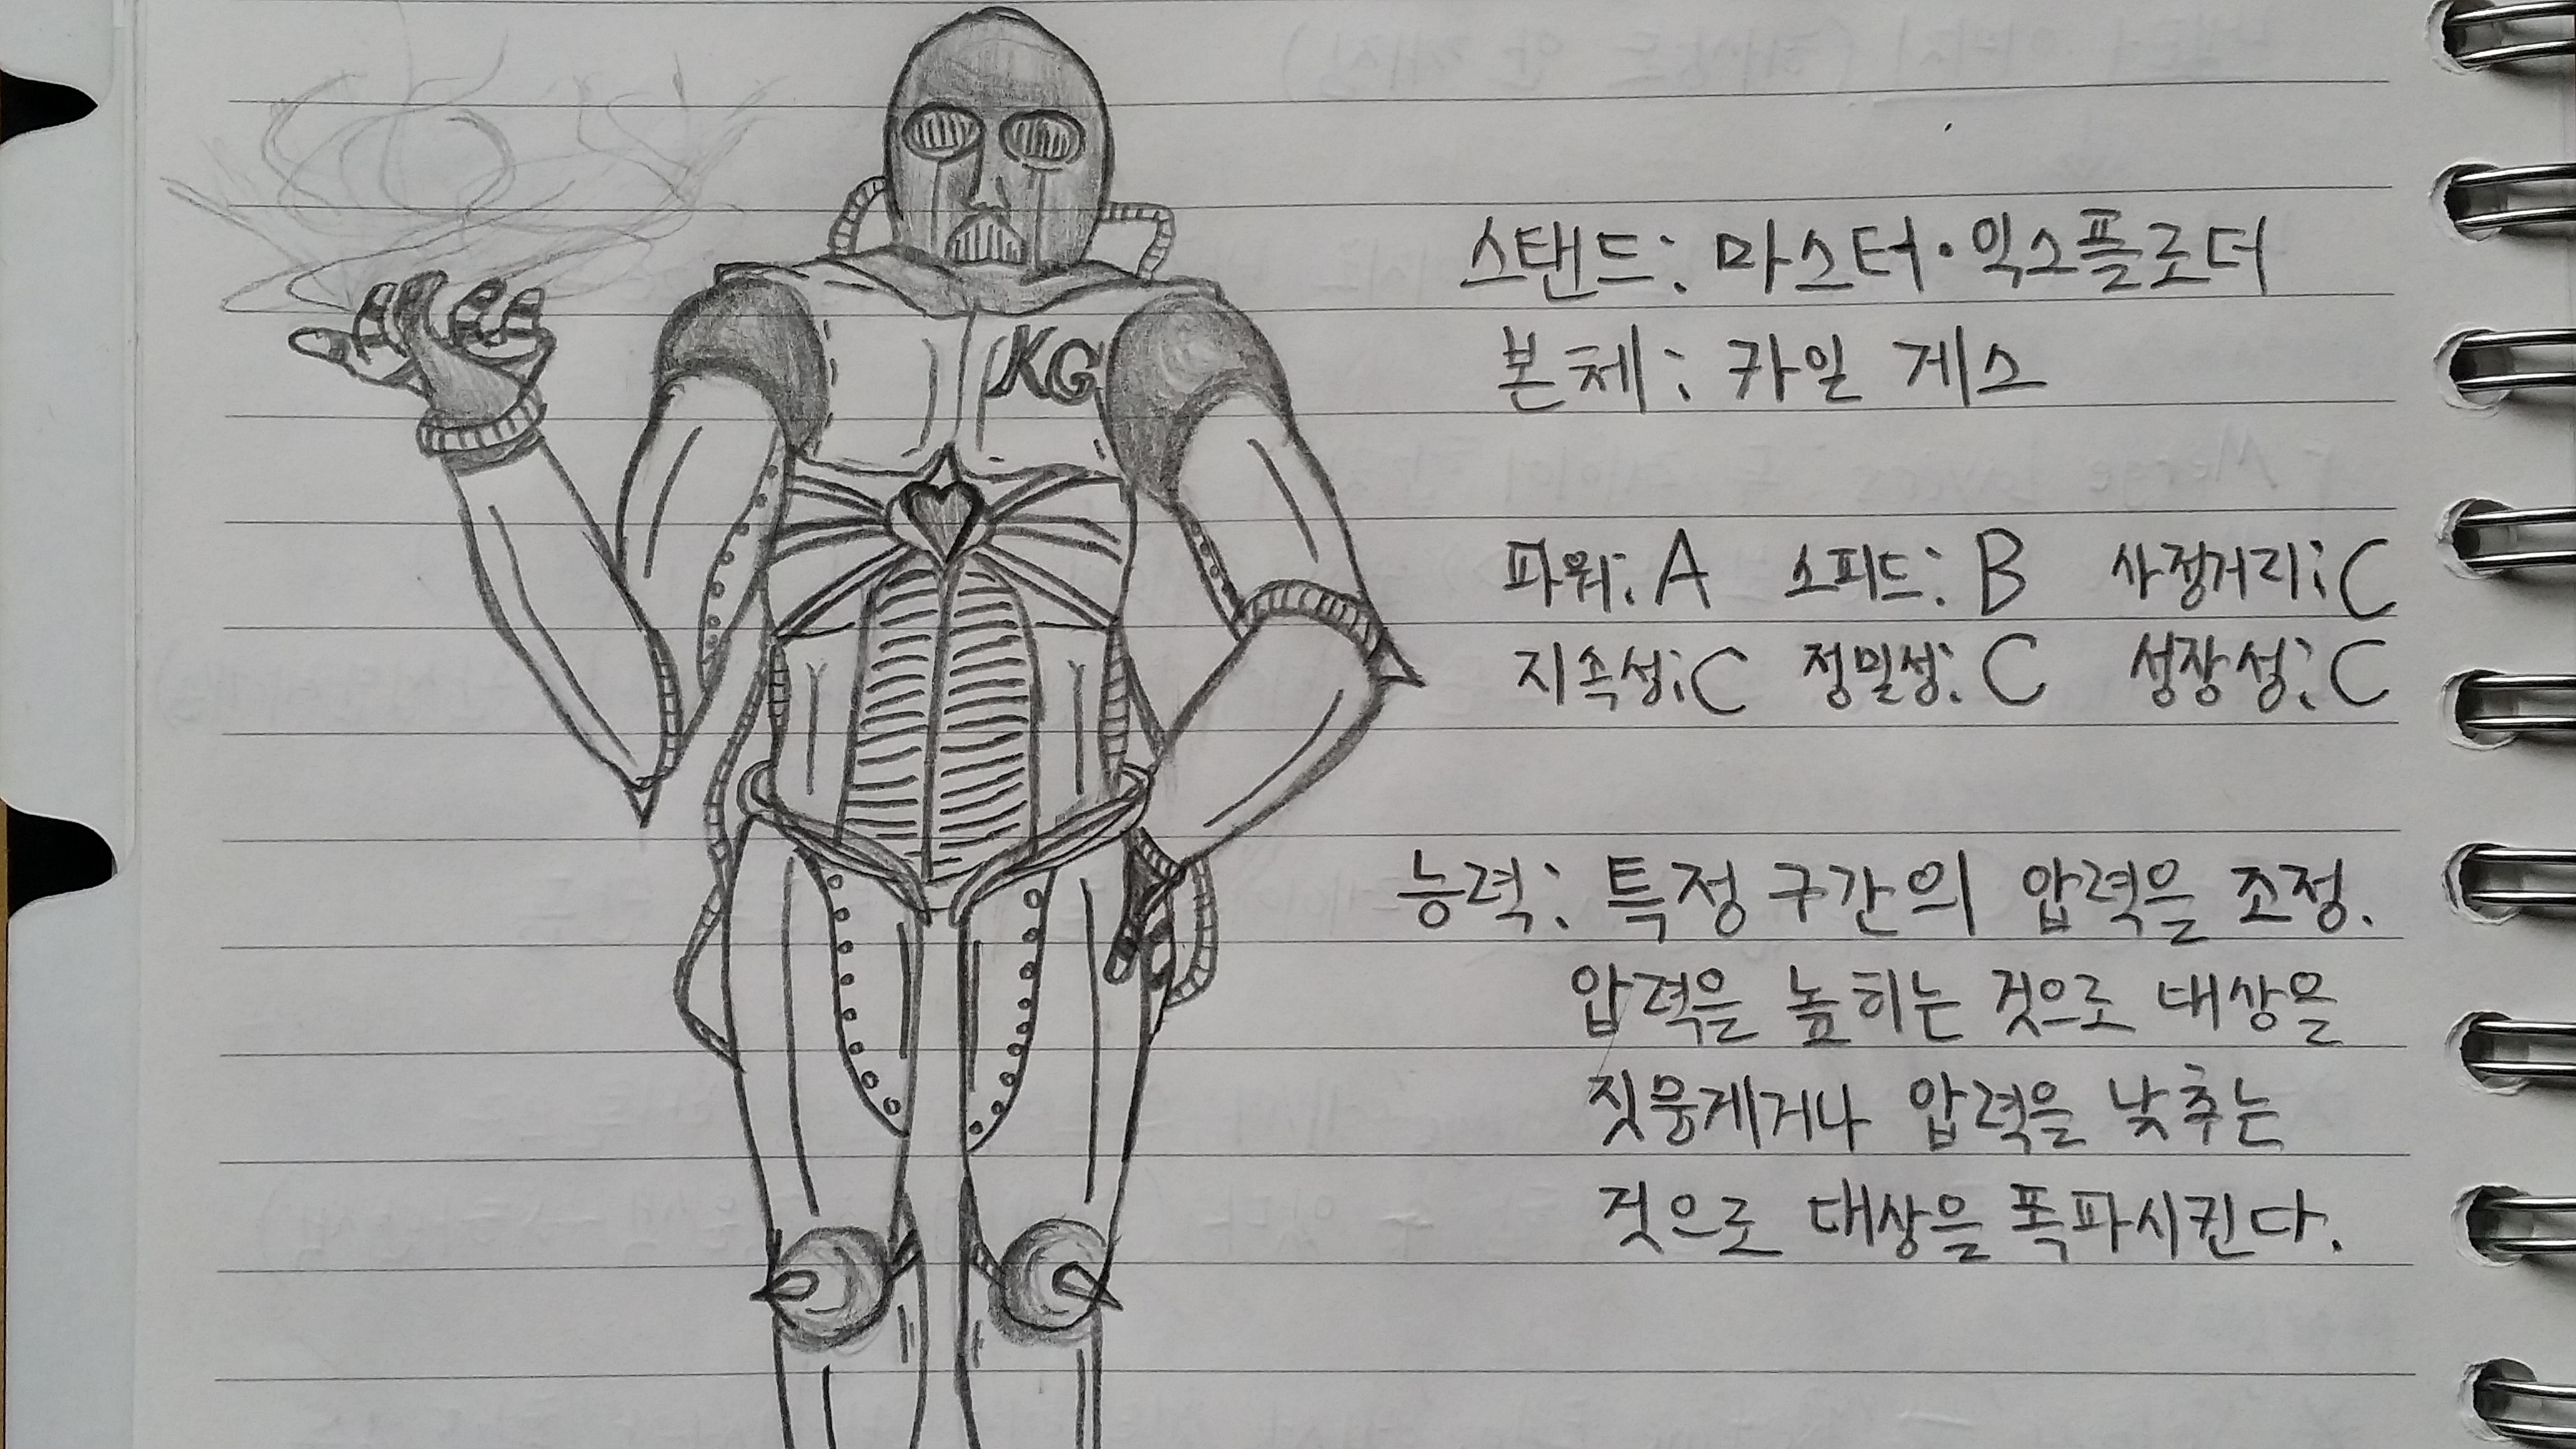 KG
스탠드: 마스터·익스플로더
본체: 카일 게스
파워: A 스피드: B 사정거리: C
지속성: C 정밀성: C 성장성: C
능력: 특정 구간의 압력을 조정.
압력을 높히는 것으로 대상을
짓뭉게거나 압력을 낮추는
것으로 대상을 폭파시킨다.